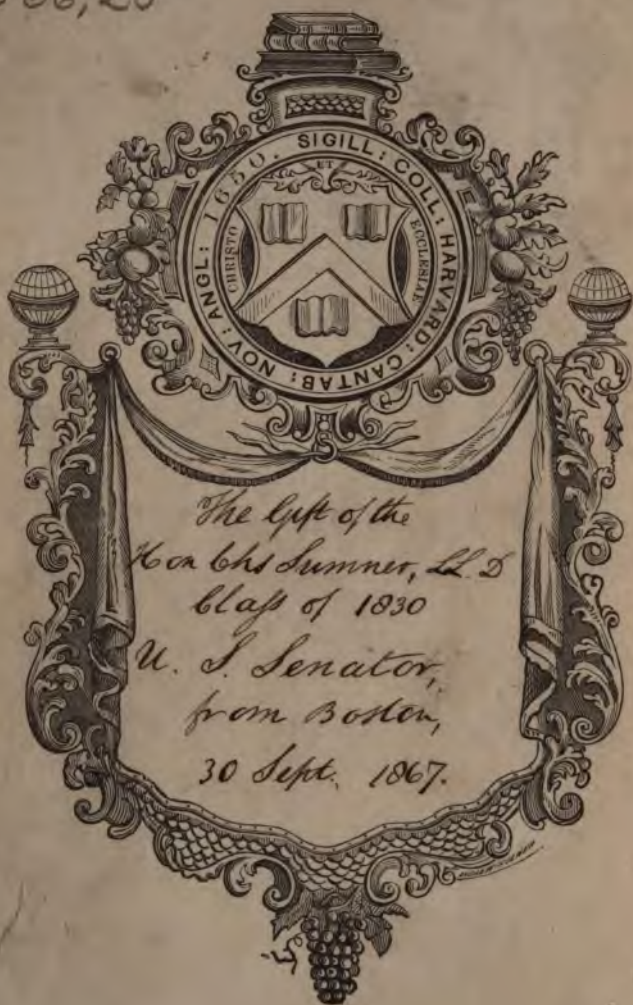 SIGILL: COLL: HARVARD: CANTAB: NOV: ANGL: 1650.
CHRISTO
ET
ECCLESIAE
The Gift of the
Hon Chs Sumner, LL. D
Class of 1830
U. S. Senator,
from Boston,
30 Sept. 1867.